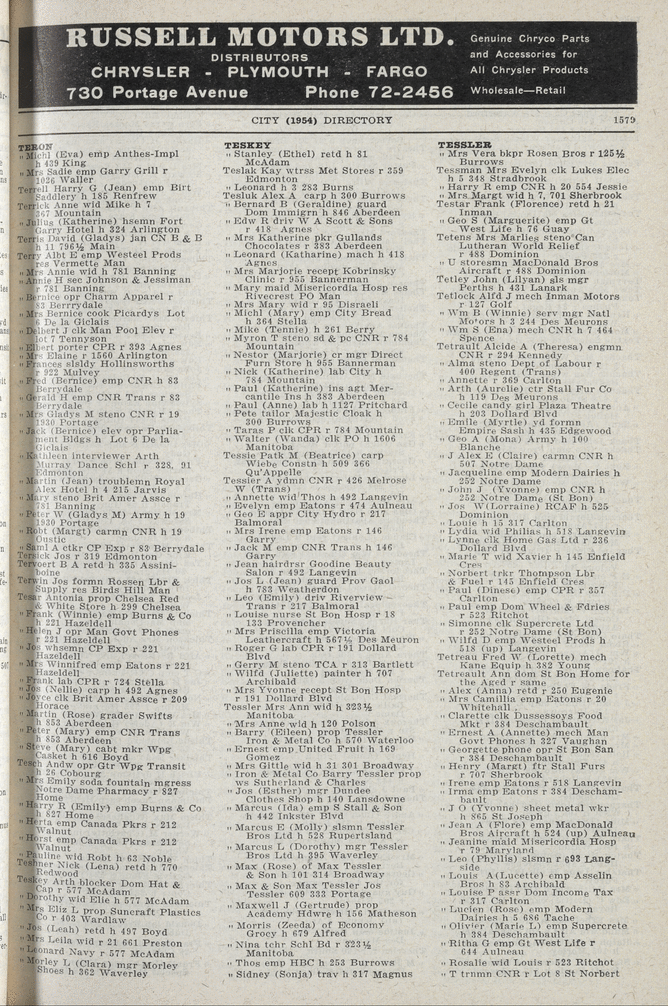 RUSSELL MOTORS LTD.
DISTRIBUTORS
CHRYSLER - PLYMOUTH - FARGO
730 Portage Avenue Phone 72-2456
Genuine Chryco Parts
and Accessories for
All Chrysler Products
Wholesale—Retail
CITY (1954) DIRECTORY 1579
TERON
" Michl (Eva) emp Anthes-Impl
h 439 King
" Mrs Sadie emp Garry Grill r
1026 Waller
Terrell Harry G (Jean) emp Birt
Saddlery h 185 Renfrew
Terrick Anne wid Mike h 7
367 Mountain
" Julius (Katharina) hsemn Fort
Garry Hotel h 324 Arlington
Terris David (Gladys) jan CN B & B
h 11 796½ Main
Terry Albt E emp Westeel Prods
res Vermette Man
" Mrs Annie wid h 781 Banning
" Annie H sec Johnson & Jessiman
r 781 Banning
" Bernice opr Charm Apparel r
83 Berrydale
" Mrs Bernice cook Picardys Lot
6 De la Giclais
" Delbert J clk Man Pool Elev r
lot 7 Tennyson
" Elbert porter CPR r 393 Agnes
" Mrs Elaine r 1560 Arlington
" Frances slsldy Hollinsworths
r 922 Mulvey
" Fred (Bernice) emp CNR h 83
Berrydale
" Gerald H emp CNR Trans r 83
Berrydale
" Mrs Gladys M steno CNR r 19
1930 Portage
" Jack (Bernice) elev opr Parlia-
ment Bldgs h Lot 6 De La
Giclais
" Kathleen interviewer Arth
Murray Dance Schl r 328, 91
Edmonton
" Martin (Jean) troublemn Royal
Alex Hotel h 4 215 Jarvis
" Mary steno Brit Amer Assce r
781 Banning
" Peter W (Gladys M) Army h 19
1930 Portage
" Robt (Margt) carmn CNR h 19
Oustic
" Saml A ctkr CP Exp r 83 Berrydale
Tersick Jos r 319 Edmonton
Tervoert B A retd h 335 Assini-
boine
Terwin Jos formn Rossen Lbr &
Supply res Birds Hill Man
Tesar Antonia prop Chelsea Red
& White Store h 299 Chelsea
" Frank (Winnie) emp Burns & Co
h 221 Hazeldell
" Helen J opr Man Govt Phones
r 221 Hazeldell
" Jos whsemn CP Exp r 221
Hazeldell
" Mrs Winnifred emp Eatons r 221
Hazeldell
" Frank lab CPR r 724 Stella
" Jos (Nellie) carp h 492 Agnes
" Joyce clk Brit Amer Assce r 209
Horace
" Martin (Rose) grader Swifts
h 853 Aberdeen
" Peter (Mary) emp CNR Trans
h 853 Aberdeen
" Steve (Mary) cabt mkr Wpg
Casket h 616 Boyd
Tesch Andw opr Gtr Wpg Transit
h 26 Cobourg
" Mrs Emily soda fountain mgress
Notre Dame Pharmacy r 827
Home
" Harry R (Emily) emp Burns & Co
h 827 Home
" Herta emp Canada Pkrs r 212
Walnut
" Horst emp Canada Pkrs r 212
Walnut
" Pauline wid Robt h 63 Noble
Teshner Nick (Lena) retd h 770
Redwood
Teskey Arth blocker Dom Hat &
Cap r 577 McAdam
" Dorothy wid Elie h 577 McAdam
" Mrs Eliz L prop Suncraft Plastics
Co r 403 Wardlaw
" Jos (Leah) retd h 497 Boyd
" Mrs Leila wid r 21 661 Preston
" Leonard Navy r 577 McAdam
" Morley L (Clara) mgr Morley
Shoes h 362 Waverley
TESKEY
" Stanley (Ethel) retd h 81
McAdam
Teslak Kay wtrss Met Stores r 359
Edmonton
" Leonard h 3 283 Burns
Tesluk Alex A carp h 300 Burrows
" Bernard B (Geraldine) guard
Dom Immigrn h 846 Aberdeen
" Edw R driv W A Scott & Sons
r 418 Agnes
" Mrs Katherine pkr Gullands
Chocolates r 383 Aberdeen
" Leonard (Katharine) mach h 418
Agnes
" Mrs Marjorie recept Kobrinsky
Clinic r 955 Bannerman
" Mary maid Misericordia Hosp res
Rivecrest PO Man
" Mrs Mary wid r 95 Disraeli
" Michl (Mary) emp City Bread
h 364 Stella
" Mike (Tennie) h 261 Berry
" Myron T steno sd & pc CNR r 784
Mountain
" Nestor (Marjorie) cr mgr Direct
Furn Store h 955 Bannerman
" Nick (Katherine) lab City h
784 Mountain
" Paul (Katherine) ins agt Mer-
cantile Ins h 383 Aberdeen
" Paul (Anne) lab h 1127 Pritchard
" Pete tailor Majestic Cloak h
300 Burrows
" Taras P clk CPR r 784 Mountain
" Walter (Wanda) clk PO h 1606
Manitoba
Tessie Patk M (Beatrice) carp
Wiebe Constn h 509 366
Qu'Appelle
Tessier A ydmn CNR r 426 Melrose
W (Trans)
" Annette wid Thos h 492 Langevin
" Evelyn emp Eatons r 474 Aulneau
" Geo E appr City Hydro r 217
Balmoral
" Mrs Irene emp Eatons r 146
Garry
" Jack M emp CNR Trans h 146
Garry
" Jean hairdrsr Goodine Beauty
Salon r 492 Langevin
" Jos L (Jean) guard Prov Gaol
h 783 Weatherdon
" Leo (Emily) driv Riverview
Trans r 217 Balmoral
" Louise nurse St Bon Hosp r 18
133 Provencher
" Mrs Priscilla emp Victoria
Leathercraft h 567½ Des Meuron
" Roger G lab CPR r 191 Dollard
Blvd
" Gerry M steno TCA r 313 Bartlett
" Wilfd (Juliette) painter h 707
Archibald
" Mrs Yvonne recept St Bon Hosp
r 191 Dollard Blvd
Tessler Mrs Ann wid h 323½
Manitoba
" Mrs Anne wid h 120 Polson
" Barry (Eileen) prop Tessler
Iron & Metal Co h 570 Waterloo
" Ernest emp United Fruit h 169
Gomez
" Mrs Gittle wid h 31 301 Broadway
" Iron & Metal Co Barry Tessler prop
ws Sutherland & Charles
" Jos (Esther) mgr Dundee
Clothes Shop h 140 Lansdowne
" Marcus (Ida) emp S Stall & Son
h 442 Inkster Blvd
" Marcus E (Molly) slsmn Tessler
Bros Ltd h 528 Rupertsland
" Marcus L (Dorothy) mgr Tessler
Bros Ltd h 395 Waverley
" Max (Rose) of Max Tessler
& Son h 101 314 Broadway
" Max & Son Max Tessler Jos
Tessler 609 333 Portage
" Maxwell J (Gertrude) prop
Academy Hdwre h 156 Matheson
" Morris (Zeeda) of Economy
Grocy h 679 Alfred
" Nina tchr Schl Bd r 323½
Manitoba
" Thos emp HBC h 253 Burrows
" Sidney (Sonja) trav h 317 Magnus
TESSLER
" Mrs Vera bkpr Rosen Bros r 125½
Burrows
Tessman Mrs Evelyn clk Lukes Elec
h 5 348 Stradbrook
" Harry R emp CNR h 20 554 Jessie
" Mrs Margt wid h 7, 701 Sherbrook
Testar Frank (Florence) retd h 21
Inman
" Geo S (Marguerite) emp Gt
West Life h 76 Guay
Tetens Mrs Marlies steno Can
Lutheran World Relief
r 488 Dominion
" U storesmn MacDonald Bros
Aircraft r 488 Dominion
Tetley John (Lilyan) sls mgr
Perths h 431 Lanark
Tetlock Alfd J mech Inman Motors
r 127 Golf
" Wm B (Winnie) serv mgr Natl
Motors h 3 244 Des Meurons
" Wm S (Ena) mech CNR h 7 464
Spence
Tetrault Alcide A (Theresa) engmn
CNR r 294 Kennedy
" Alma steno Dept of Labour r
400 Regent (Trans)
" Annette r 369 Carlton
" Arth (Aurelie) ctr Stall Fur Co
h 119 Des Meurons
" Cecile candy girl Plaza Theatre
h 203 Dollard Blvd
" Emile (Myrtle) yd formn
Empire Sash h 435 Edgewood
" Geo A (Mona) Army h 100
Blanche
" J Alex E (Claire) carmn CNR h
507 Notre Dame
" Jacqueline emp Modern Dairies h
252 Notre Dame
" John J (Yvonne) emp CNR h
252 Notre Dame (St Bon)
" Jos W (Lorraine) RCAF h 525
Dominion
" Louie h 15 317 Carlton
" Lydia wid Philias h 518 Langevin
" Lynne clk Home Gas Ltd r 236
Dollard Blvd
" Marie T wid Xavier h 145 Enfield
Cres
" Norbert trkr Thompson Lbr
& Fuel r 145 Enfield Cres
" Paul (Dinese) emp CPR r 357
Carlton
" Paul emp Dom Wheel & Fdries
r 523 Ritchot
" Simonne clk Supercrete Ltd
r 252 Notre Dame (St Bon)
" Wilfd D emp Westeel Prods h
518 (up) Langevin
Tetreau Fred W (Lorette) mech
Kane Equip h 382 Young
Tetreault Ann dom St Bon Home for
the Aged r same
" Alex (Anna) retd r 250 Eugenie
" Mrs Camillia emp Eatons r 20
Whitehall
" Clarette clk Dussessoys Food
Mkt r 384 Deschambault
" Ernest A (Annette) mech Man
Govt Phones h 327 Vaughan
" Georgette phone opr St Bon San
r 384 Deschambault
" Henry (Margt) ftr Stall Furs
r 707 Sherbrook
" Irene emp Eatons r 518 Langevin
" Irma emp Eatons r 384 Descham-
bault
" J O (Yvonne) sheet metal wkr
h 865 St Joseph
" Jean A (Flore) emp MacDonald
Bros Aircraft h 524 (up) Aulneau
" Jeanine maid Misericordia Hosp
r 79 Maryland
" Leo (Phyllis) slsmn r 693 Lang-
side
" Louis A (Lucette) emp Asselin
Bros h 83 Archibald
" Louise P assr Dom Income Tax
r 317 Carlton
" Lucien (Rose) emp Modern
Dairies h 5 686 Tache
" Olivier (Marie L) emp Supercrete
h 384 Deschambault
" Ritha G emp Gt West Life r
644 Aulneau
" Rosalie wid Louis r 523 Ritchot
" T trnmn CNR r Lot 8 St Norbert